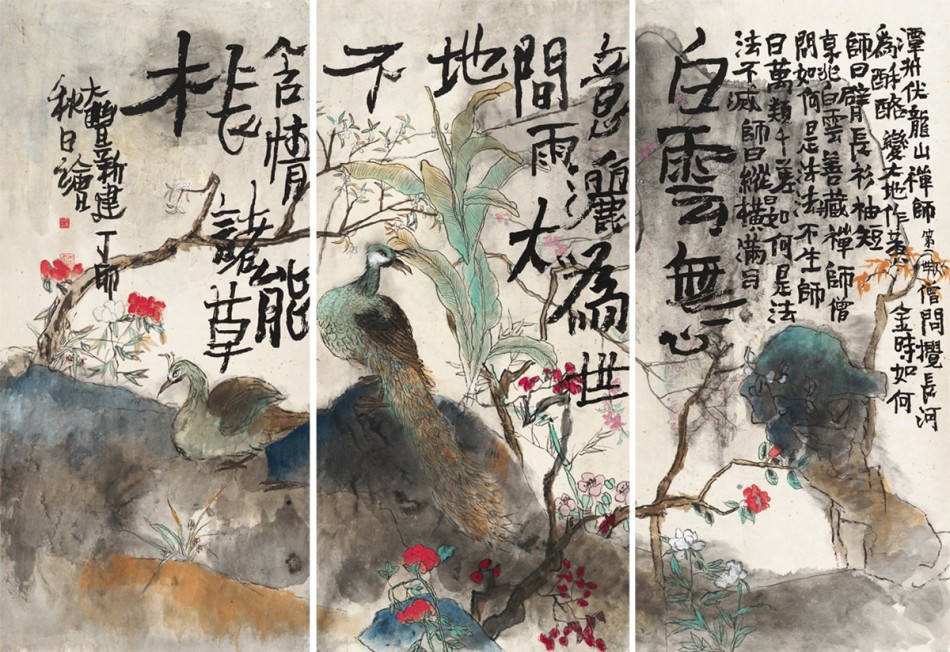 潭州伏龍山禪師第一世僧問攪長河
為酥酪變大地作黃金時如何
師曰臂長衫袖短
京兆白雲善藏禪師僧
問如何是法法不生師
曰萬類千差如何是法
法不滅師曰縱橫滿目
白雲無心
意灑為世
間雨大
地
不
含情能
長諸草
木
大豐新建丁卯
秋日繪